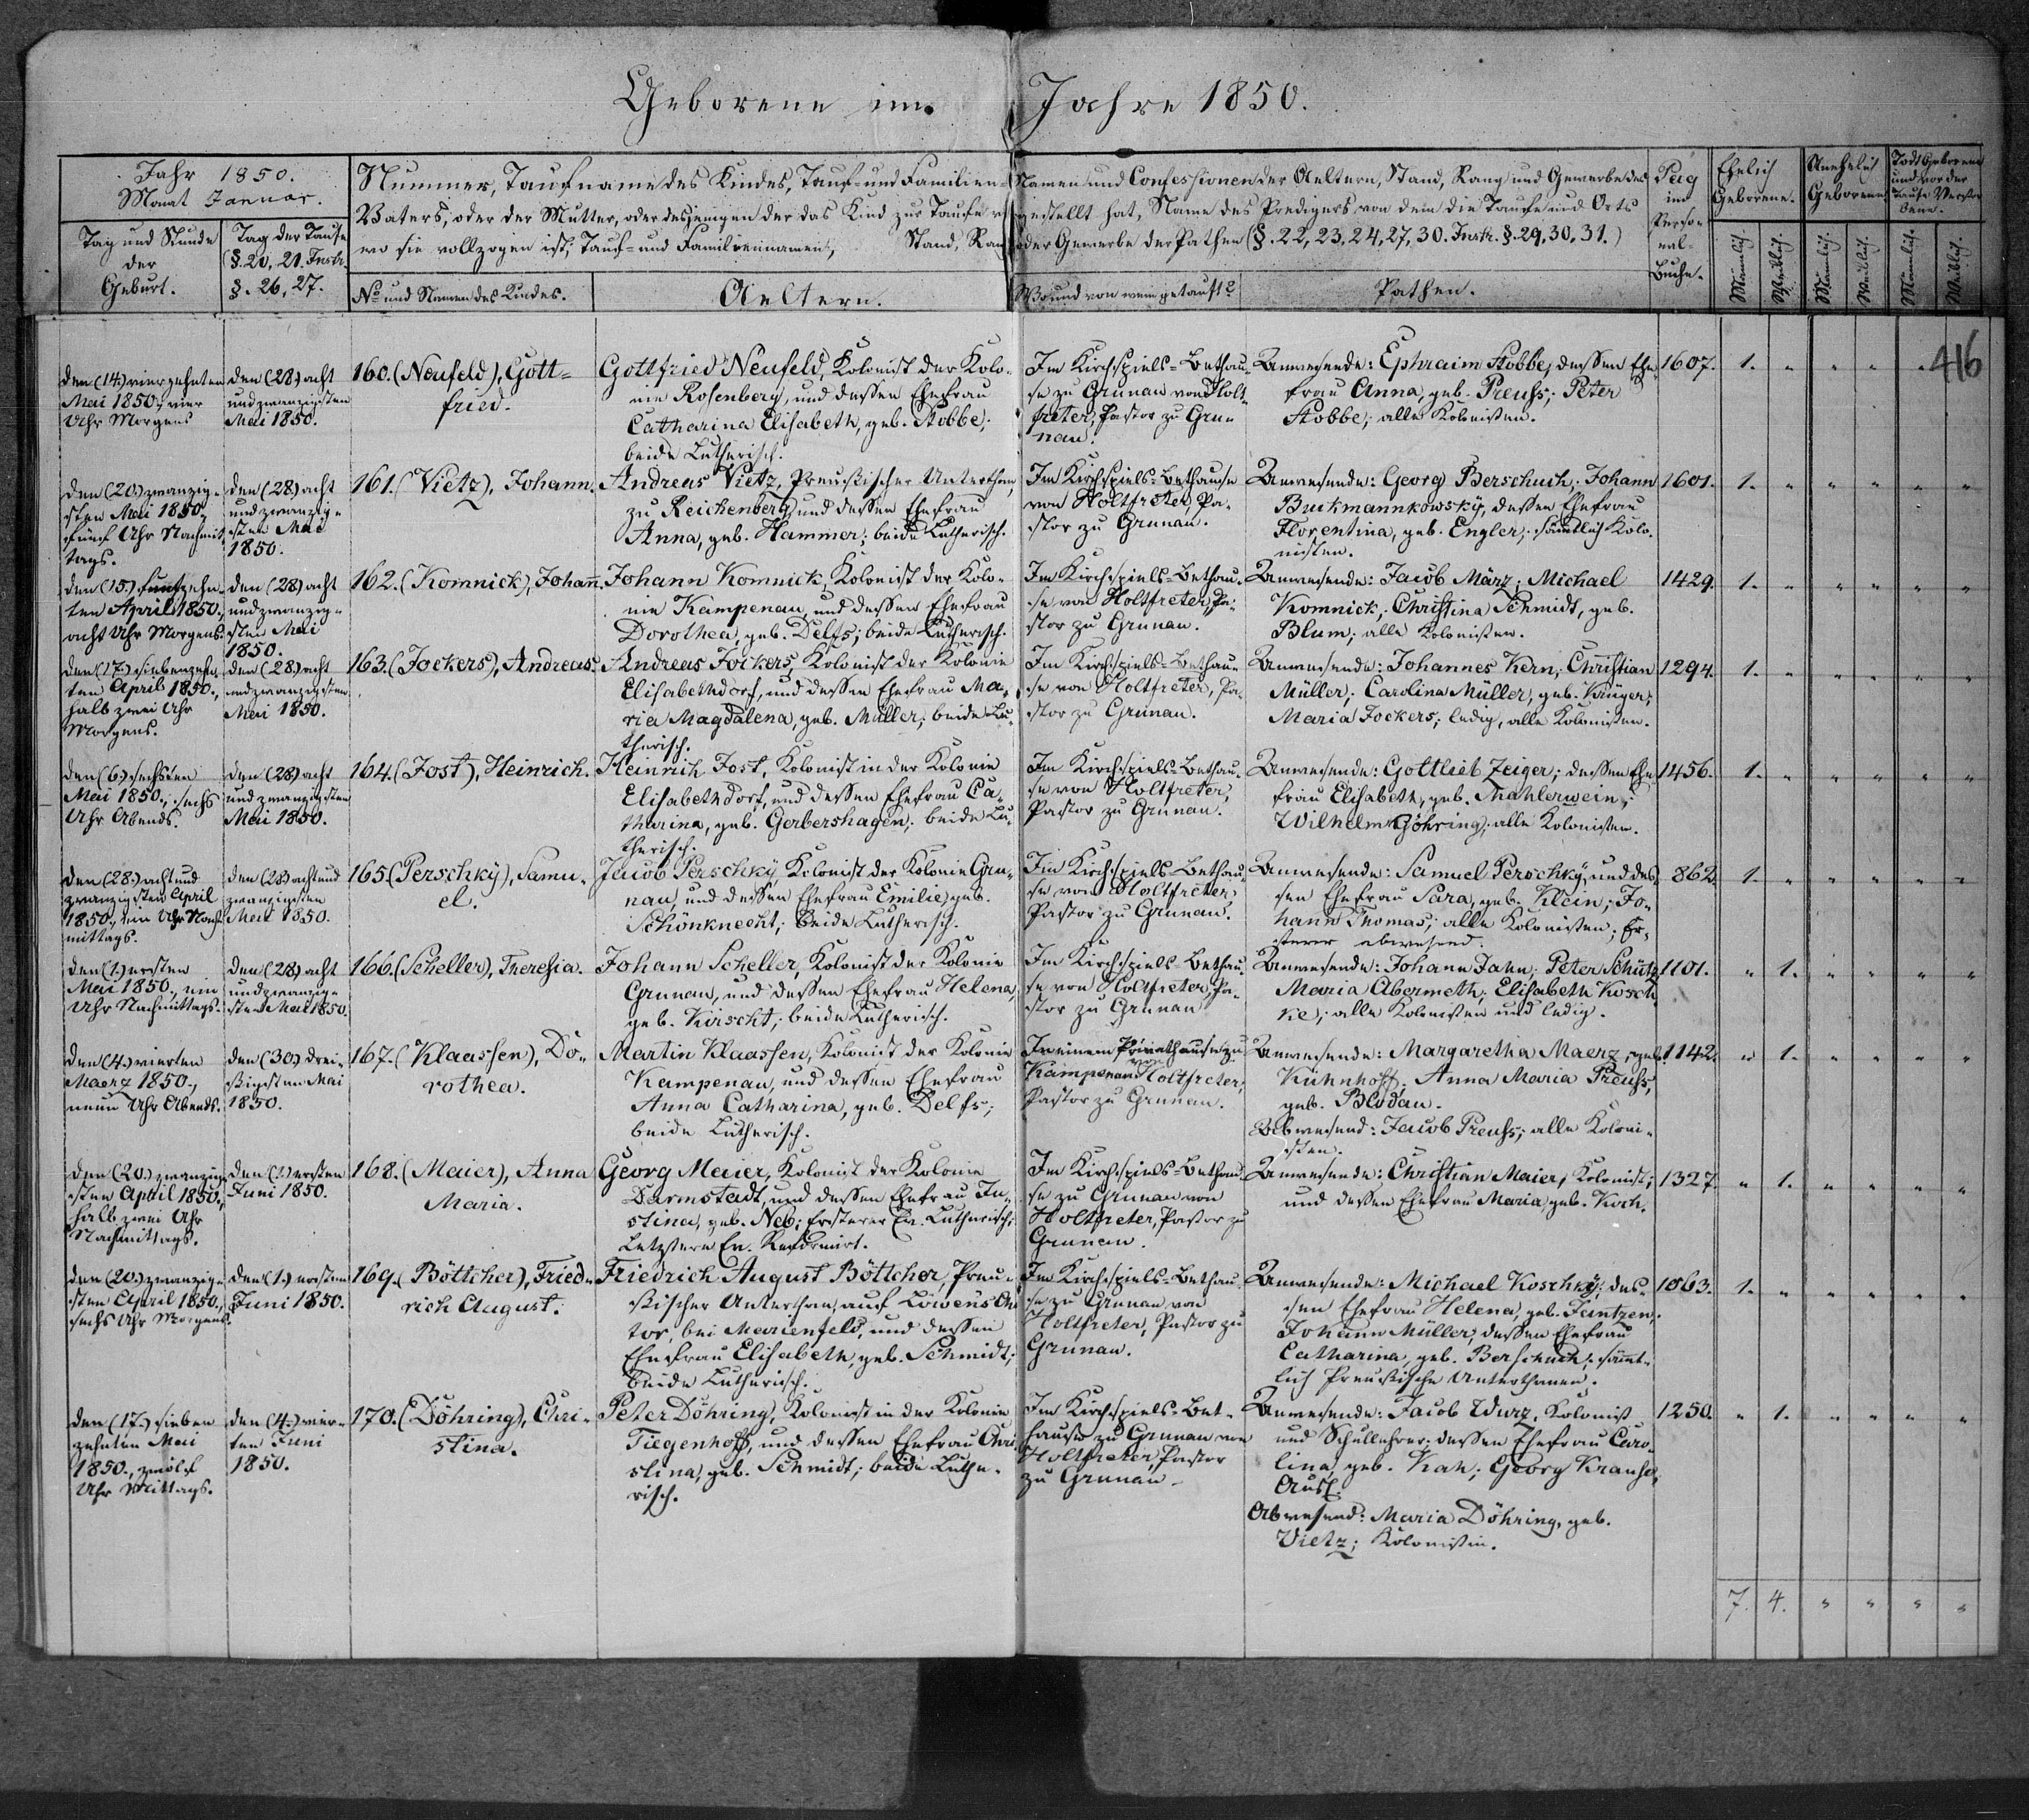 Geborene im Jahre 1850.
Jahr 1850.
Monat Januar.
Tag und Stunde
der
Geburt.
Tag der Taufe
(§. 20, 21. Instr.
§. 26, 27.
Nummer, Taufname des Kindes, Tauf- und Familien-
Vaters, oder der Mutter, oder desjenigen der das Kind zur Taufe
wo sie vollzogen ist, Tauf- und Familiennamen, Stand, Rang
No und Namen des Kindes.
Aeltern.
Namen und Confessionen der Aeltern, Stand, Rang und Gewerbe des
gestellt hat, Name des Predigers von dem die Taufe und Orts
oder Gewerbe der Pathen (§. 22, 23, 24, 27, 30. Instr. §. 29, 30, 31.)
Wo und von wem getauft?
Pathen.
Pag
im
Perso-
nal-
Buche.
Ehelich
Geborene.
Unehelich
Geborene
Todt Geborene
und vor der
Taufe Verstor
bene.
Männlich.
Weiblich.
Männlich.
Weiblich.
Männlich.
Weiblich.
416
den (14.) vierzehnten
Mai 1850., vier
Uhr Morgens
den (28.) acht
und zwanzigsten
Mai 1850.
160. (Neufeld), Gott-
fried.
Gottfried Neufeld, Kolonist der Kolo-
nie Rosenberg, und dessen Ehefrau
Catharina Elisabeth, geb. Stobbe;
beide Lutherisch.
Im Kirchspiels-Bethau-
se zu Grunau von Holt-
freter, Pastor zu Gru-
nau.
Anwesende: Ephraim Stobbe, dessen Ehe-
frau Anna, geb. Preuss; Peter
Stobbe; alle Kolonisten.
1607. 1. " " " "
den (20.) zwanzig-
sten Mai 1850.,
fünf Uhr Nachmit-
tags.
den (28.) acht
und zwanzig-
sten Mai
1850.
161. (Vietz), Johann.
Andreas Vietz, Preußischer Unterthan,
zu Reichenberg, und dessen Ehefrau
Anna, geb. Hammer; beide Lutherisch.
Im Kirchspiels-Bethause
von Holtfreter, Pa-
stor zu Grunau.
Anwesende: Georg Berschuch; Johann
Buckmannkowsky, dessen Ehefrau
Florentina, geb. Engler; sämtlich Kolo-
nisten.
1601. 1. " " " " "
den (15.) fünfzehn-
ten April 1850.,
acht Uhr Morgens.
den (28.) acht
und zwanzig-
sten Mai
1850.
162. (Komnick), Johann.
Johann Komnick, Kolonist der Kolo-
nie Kampenau, und dessen Ehefrau
Dorothea, geb. Delfs; beide Lutherisch.
Im Kirchspiels-Bethau-
se von Holtfreter, Pa-
stor zu Grunau.
Anwesende: Jacob März; Michael
Komnick; Christina Schmidt, geb.
Blum; alle Kolonisten.
1429. 1. " " " " "
den (17.) siebenzehn-
ten April 1850.,
halb zwei Uhr
Morgens.
den (28.) acht
und zwanzigsten
Mai 1850.
163. (Jockers), Andreas.
Andreas Jockers, Kolonist der Kolonie
Elisabethdorf, und dessen Ehefrau Ma-
ria Magdalena, geb. Müller; beide Lu-
therisch.
Im Kirchspiels-Bethau-
se von Holtfreter, Pa-
stor zu Grunau.
Anwesende: Johannes Kern; Christian
Müller; Carolina Müller, geb. Krüger;
Maria Jockers; ledig, alle Kolonisten.
1294. 1. " " " " "
den (6.) sechsten
Mai 1850., sechs
Uhr Abends.
den (28.) acht
und zwanzigsten
Mai 1850.
164. (Jost), Heinrich.
Heinrich Jost, Kolonist in der Kolonie
Elisabethdorf, und dessen Ehefrau Ca-
tharina, geb. Gerbershagen; beide Lu-
therisch.
Im Kirchspiels-Bethau-
se von Holtfreter,
Pastor zu Grunau.
Anwesende: Gottlieb Zeiger; dessen Ehe-
frau Elisabeth, geb. Mahlerwein;
Wilhelm Göhring; alle Kolonisten.
1456. 1. " " " " "
den (28.) acht und
zwanzigsten April
1850., ein Uhr Nach-
mittags.
den (28.) acht und
zwanzigsten
Mai 1850.
165. (Perschky), Samu-
el.
Jacob Perschky, Kolonist der Kolonie Gru-
nau, und dessen Ehefrau Emilie, geb.
Schönknecht; beide Lutherisch.
Im Kirchspiels-Bethau-
se von Holtfreter,
Pastor zu Grunau.
Anwesende: Samuel Perschky, und des-
sen Ehefrau Sara, geb. Klein; Jo-
hann Thomas; alle Kolonisten; Er-
sterer abwesend.
862. 1. " " " " "
den (1.) ersten
Mai 1850., ein
Uhr Nachmittags.
den (28.) acht
und zwanzig-
sten Mai 1850.
166. (Scheller), Theresia.
Johann Scheller, Kolonist der Kolonie
Grunau, und dessen Ehefrau Helena,
geb. Kirscht; beide Lutherisch.
Im Kirchspiels-Bethau-
se von Holtfreter, Pa-
stor zu Grunau
Anwesende: Johann Jahn; Peter Schütz
Maria Abermeth; Elisabeth Kosch-
ke; alle Kolonisten und ledig.
1101. " 1. " " " "
den (4.) vierten
Maerz 1850.,
neun Uhr Abends.
den (30.) drei-
ßigsten Mai
1850.
167. (Klaassen), Do-
rothea.
Martin Klaassen, Kolonist der Kolonie
Kampenau, und dessen Ehefrau
Anna Catharina, geb. Delfs;
beide Lutherisch.
In einem Privathause zu
Kampenau von Holtfreter,
Pastor zu Grunau.
Anwesende: Margaretha Maerz, geb.
Kühnhoff; Anna Maria Preuss,
geb. Blodau.
Abwesend: Jacob Preuss; alle Koloni-
sten.
1142. " 1. " " " "
den (20.) zwanzig-
sten April 1850.,
halb zwei Uhr
Nachmittags.
den (1.) ersten
Juni 1850.
168. (Maier), Anna
Maria.
Georg Maier, Kolonist der Kolonie
Darmstadt, und dessen Ehefrau Ju-
stina, geb. Neb; Ersterer Ev. Lutherisch,
Letztere Ev. Reformirt.
Im Kirchspiels-Bethau-
se zu Grunau von
Holtfreter, Pastor zu
Grunau.
Anwesende: Christian Maier, Kolonist;
und dessen Ehefrau Maria, geb. Koch.
1327. " 1. " " " "
den (20.) zwanzig-
sten April 1850.,
sechs Uhr Morgens.
den (1.) ersten
Juni 1850.
169. (Böttcher), Fried-
rich August.
Friedrich August Böttcher, Preu-
ßischer Unterthan, auf Löwens Chu
tor, bei Marienfeld, und dessen
Ehefrau Elisabeth, geb. Schmidt;
beide Lutherisch.
Im Kirchspiels-Bethau-
se zu Grunau von
Holtfreter, Pastor zu
Grunau.
Anwesende: Michael Koschky; des-
sen Ehefrau Helena, geb. Jantzen;
Johann Müller, dessen Ehefrau
Catharina, geb. Berschuch; sämmt-
lich Preußische Unterthanen.
1063. 1. " " " " "
den (17.) sieben
zehnten Mai
1850., zwölf
Uhr Mittags.
den (4.) vier-
ten Juni
1850.
170. (Döhring), Chri-
stina.
Peter Döhring, Kolonist in der Kolonie
Tiegenhoff, und dessen Ehefrau Chri
stina, geb. Schmidt; beide Luthe-
risch.
Im Kirchspiels-Bet-
hause zu Grunau von
Holtfreter, Pastor
zu Grunau
Anwesende: Jacob Wurz, Kolonist
und Schullehrer; dessen Ehefrau Caro-
lina, geb. Kak; Georg Krause,
Abwesend: Maria Döhring, geb.
Vietz; Kolonistin.
1250. " 1. " " " "
7. 4. " " " "